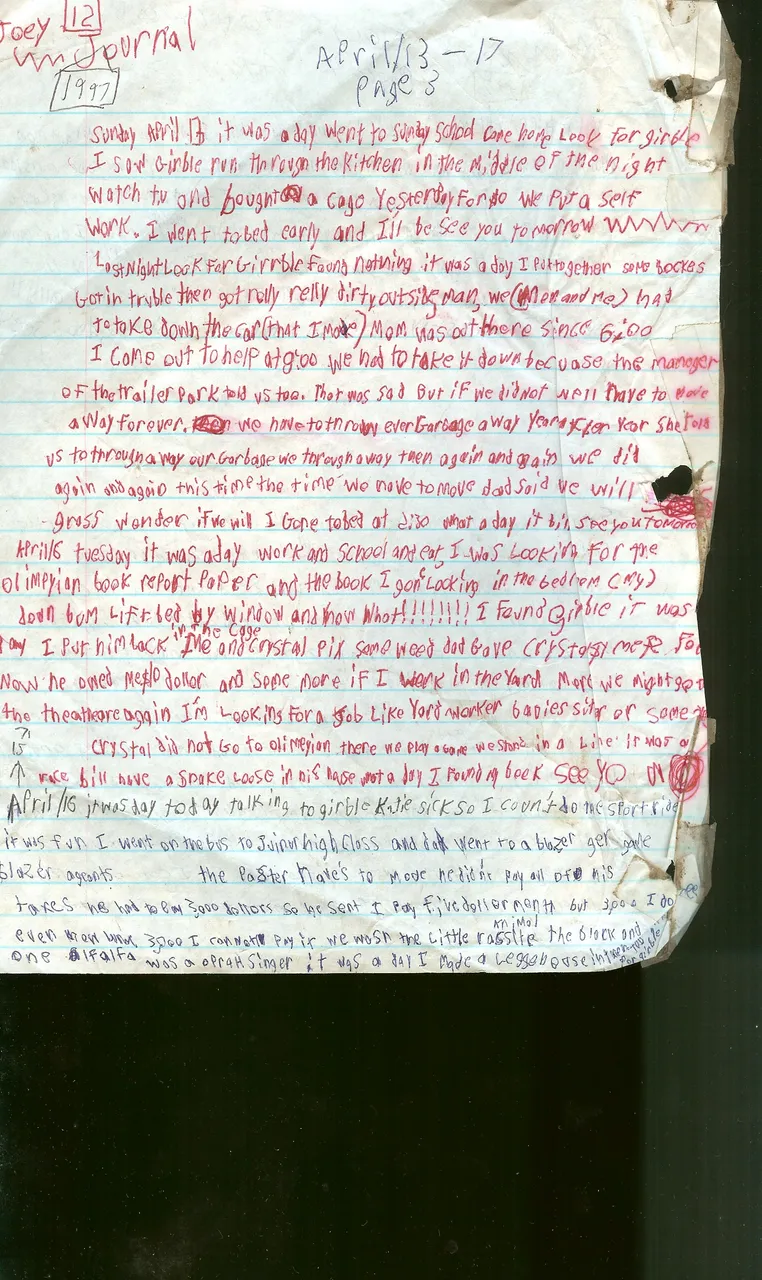 Joey 12
Journal
1997
April/13-17
page 3
Sunday April it was a day went to sunday school come home Look for girble
I saw Girble run through the Kitchen in the Middle of the night
watch tv and bought a cage Yesterday for we Put a self
work. I went to bed early and I'll be see you tomorrow
Last Night Look For Girrble Found nothing it was a day I Put together some bockes
Got in truble then got rolly relly dirty outside man, we (Mom and me) had
to take down the car (that I Made) Mom was out there since 6:00
I Come out to help at 9:00 we had to take it down becuase the maneger
of the trailer Park told us too. That was sad But if we did not well have to move
away forever. we have to throw ever Garbage away Year after Year She told
us to through away our Garbage we through away then again and again we did
again and again this time the time we move to Move dad said we will
gross wonder if we will I Gone to bed at what a day it bill see you tomorro
April/6 tuesday it was a day work and school and eat I was Looking for the
olimpyian book report PaPer and the book I gon Looking in the bedrom (My)
down bum Lift bed by window and know What!!!!!!!! I Found Girble it was
I Put him back in the Cage Me and Crystal Pix some weed dad Gave Crystal me for
Now he owed me 10 dollor and Some more if I work in the Yard More we might go
the theatheare again I'm Looking for a Job Like Yord worker babies sitr or some
15 Crystal did not Go to olimeyian there we Play a Game we stand in a Line it was a
race bill have a snake Loose in his hase what a day I Found my book SEE YO
April/16 it was day today talking to girble Katie sick so I count do the sport ride
it was fun I went on the bus to Juinur high Class and dad went to a blazer ger game
blazer agents the Paster Have's to move he didn't Pay all of his
taxes he had to Pay 3000 dollors so he sent I Pay five dollor month but 3000 I do
even know 3000 I cannot Pay it we wash the Little rasslie Animal the block and
one alfalfa was a oprah singer it was a day I Made a Lego house in for girble